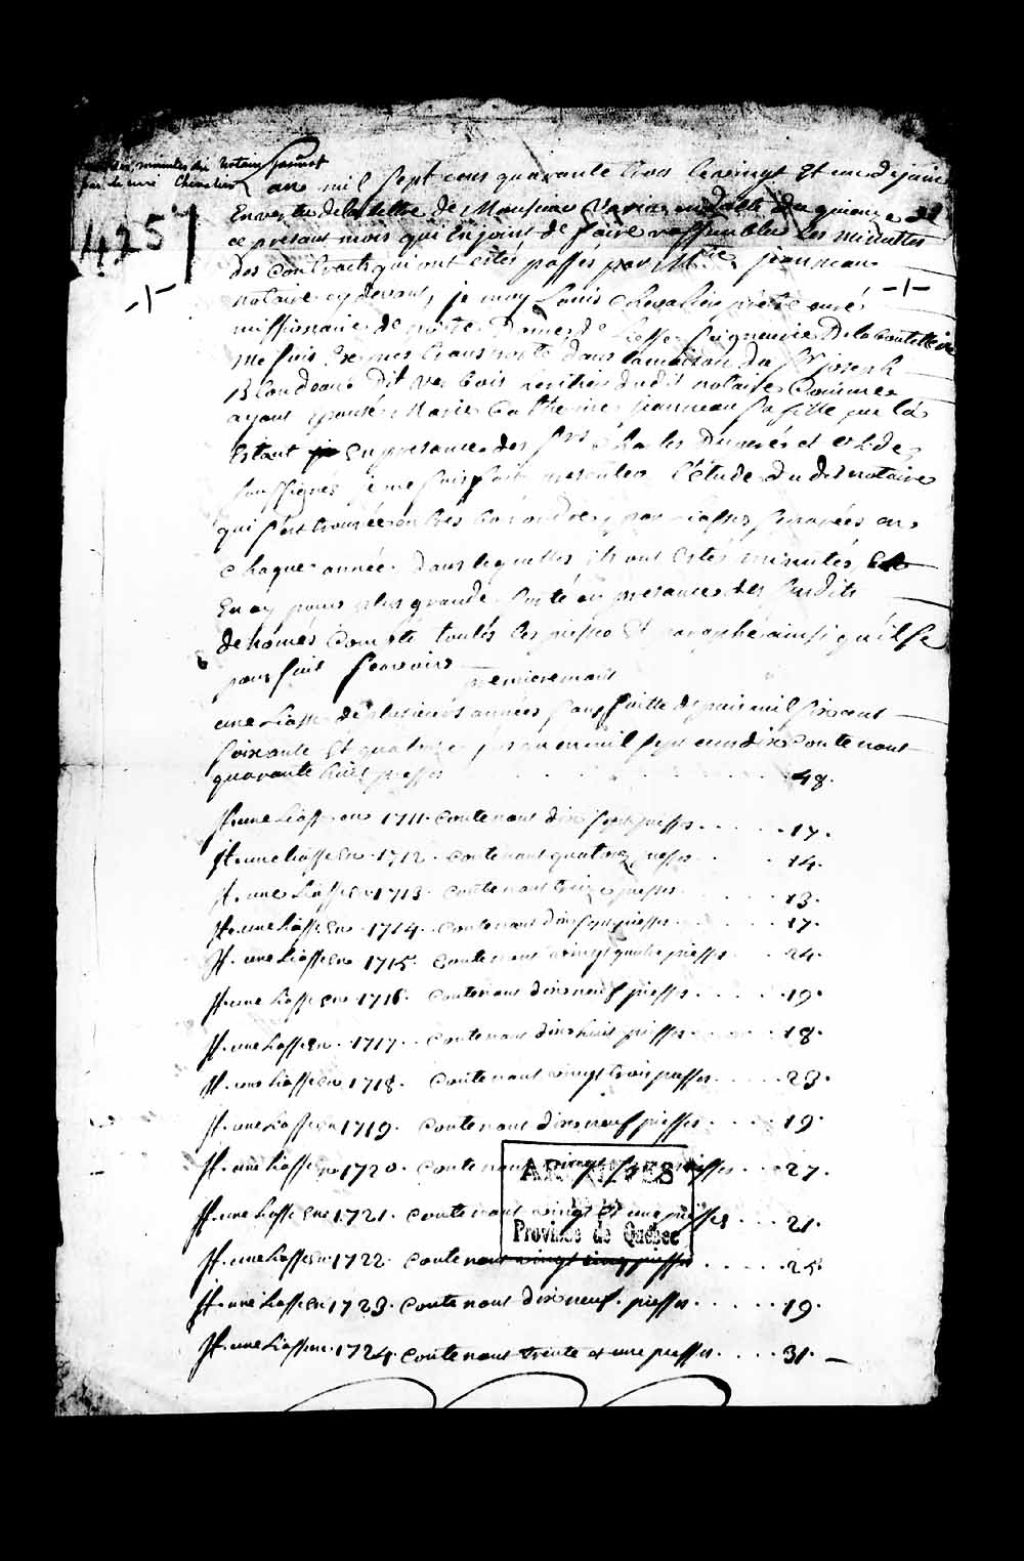 minutes du Notaire Janneau
par le curé Chevalier
425
L'an mil sept cens quarante trois le vingt Et un de juin
En vertu de la lettre de Monsieur Varin en datte du quienze
de presant mois qui Enjoint de faire rassembler Les minuttes
des Contracts qui ont estés passés par Mtre janneau
notaire cy devant, je moy Louis Chevalier pretre curé
missionnaire de notre Dame de Liesse Seigneurie De la bouteillerie
me suis transporté dans la maison du Sr joseph
Blondeau Dit heritier dudit notaire Comme
ayant epousé Marie Catherine janneau sa fille par la
Estant En presance des Srs Charles et
soussignes je me suis fait presenter l'étude du dit notaire
qui s'est trouvée en par liasses separées en
chaque année dans lequelles ils ont Estés minutés Et
En ay pour plus grande en presance des susdits
denomés Compté toutes les piesses Et paraphé ainsi qu'il se
pour suit sçavoir
premierement
une Liasse de plusieurs années sans suitte depuis mil six cent
soixante Et quatorze jusqu'en mil sept cens dix Contenant
quarante huit piesses 48.
It. une Liasse en 1711. Contenant dix sept piesses . . . . . 17.
It. une Liasse En 1712. Contenant quatorze piesses . . 14.
It. une Liasse En 1713. Contenant treize piesses . . . 13.
It. une Liasse En 1714. Contenant dix sept piesses . . . . 17.
It. une Liasse En 1715. Contenant vingt quatre piesses . . 24.
It. une Liasse En 1716. Contenant dix neuf piesses . . . . . 19.
It. une Liasse En 1717. Contenant dix huit piesses . . . . 18.
It. une Liasse En 1718. Contenant vingt trois piesses . . . . . 23.
It. une Liasse En 1719. Contenant dix neuf piesses . . . . 19.
It. une Liasse En 1720. Contenant vingt sept piesses . . . 27.
It. une Liasse En 1721. Contenant vingt Et une piesses . . . 21.
It. une Liasse En 1722. Contenant vingt cinq piesses . . . . . 25.
It. une Liasse En 1723. Contenant dix neuf piesses . . . . . 19.
It. une Liasse En 1724. Contenant trente et une piesses . . . . 31.
ARCHIVES
Province de Québec